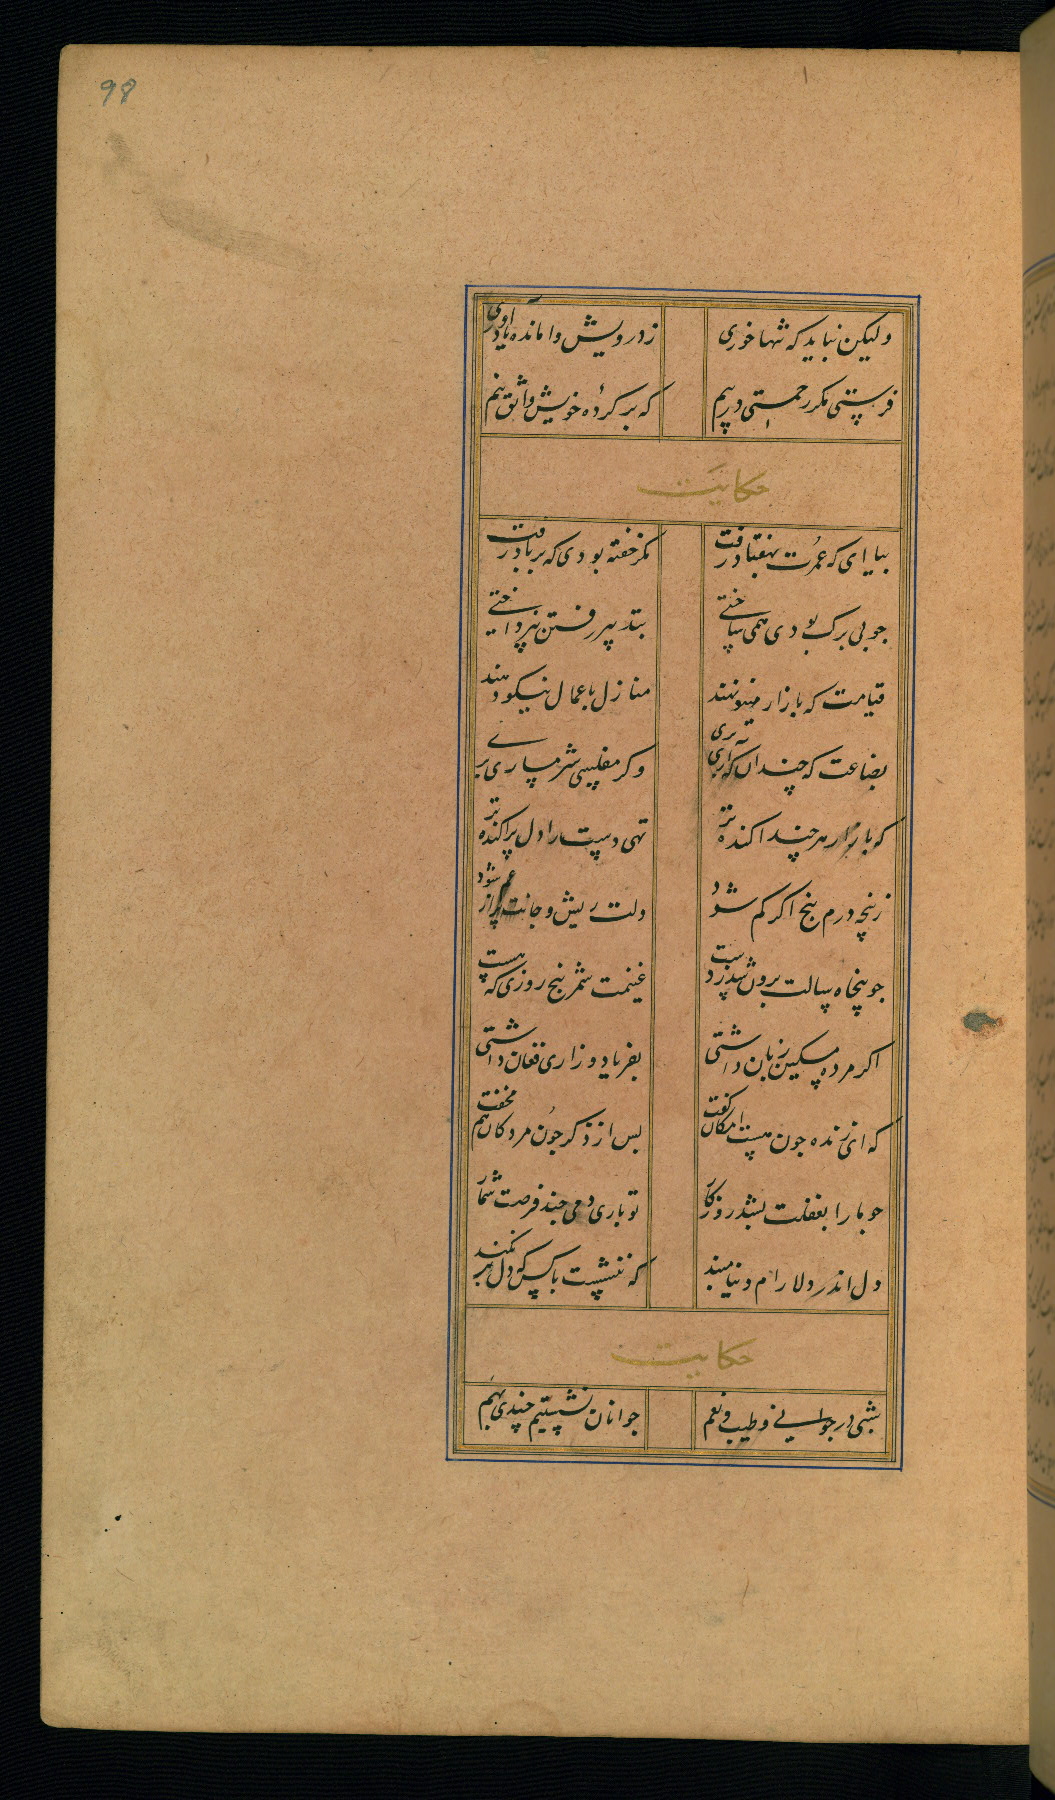 98
ولیکن نباید که تنها خوری ز درویش وامانده یاد آوری
فرستی مکر رحمتی در پیم که بر کردهٔ خویش واثق نیم
حکایت
بیا ای که عمرت بهفتاد رفت مکر خفته بودی که بر باد رفت
جو بی برک بودی همی ساختی بتدبیر رفتن نپرداختی
قیامت که بازار مینو نهند منازل باعمال نیکو دهند
بضاعت که چندان که آری بری وکر مفلسی شرمساری بری
که بازار هرچند اکنده تر تهی دست را دل پراکنده تر
ز پنجه درم پنج اکر کم شود دلت ریش و جانت پر از غم شود
جو پنجاه سالت برون شد ز دست غنیمت شمر پنج روزی که هست
اکر مرده مسکین زبان داشتی بفریاد و زاری فغان داشتی
که ای زنده جون هست امکان کفت لب از ذکر جون مردکان هم مخفت
جو ما را بغفلت بشد روزکار تو باری دمی چند فرصت شمار
دل اندر دلارام دنیا مبند که ننشست با کس که دل بر نکند
حکایت
شبی در جوانی و طیب و نعم جوانان نشستیم چندی بهم